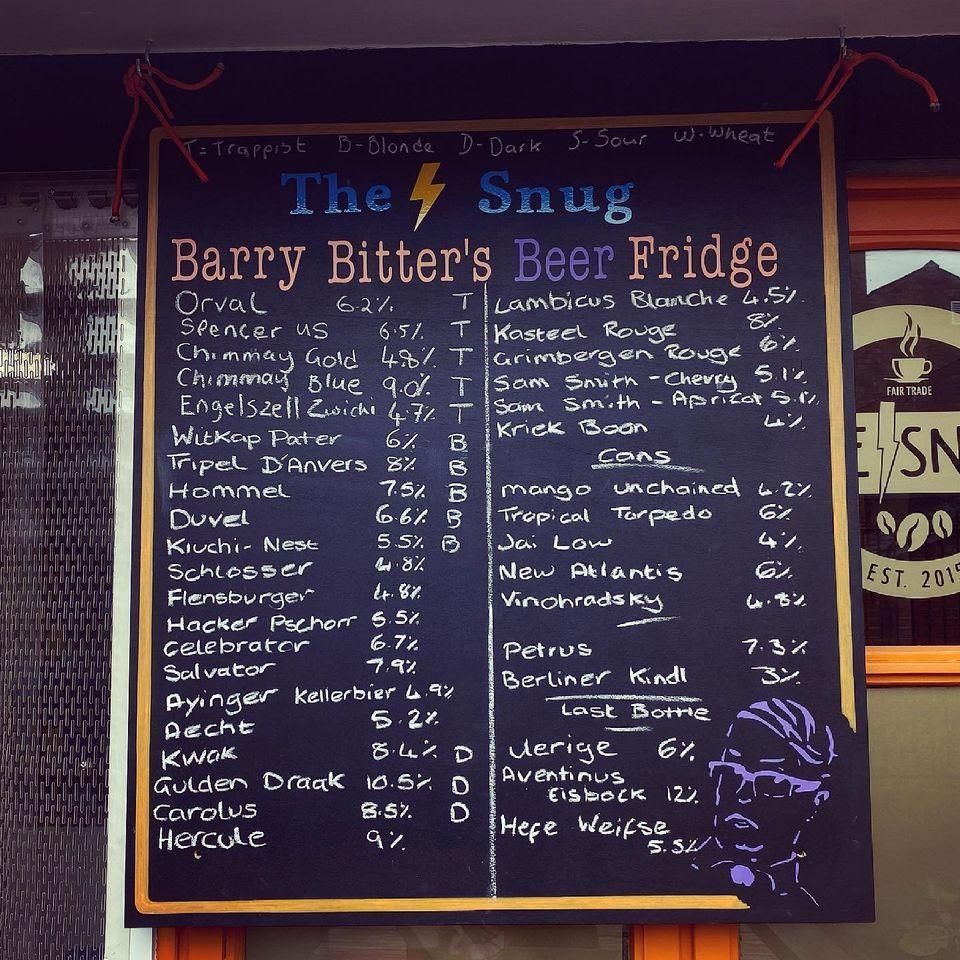 T=Trappist B-Blonde D-Dark S-Sour W-Wheat
The Snug
Barry Bitter's Beer Fridge
Orval 6.2% T
Spencer US 6.5% T
Chimmay Gold 4.8% T
Chimmay Blue 9.0% T
Engelszell Zwichi 4.7% T
Witkap Pater 6% B
Tripel D'Anvers 8% B
Hommel 7.5% B
Duvel 6.6% B
Kiuchi-Nest 5.5% B
Schlosser 4.8%
Flensburger 4.8%
Hacker Pschorr 5.5%
Celebrator 6.7%
Salvator 7.9%
Ayinger Kellerbier 4.9%
Aecht 5.2%
Kwak 8.4% D
Gulden Draak 10.5% D
Carolus 8.5% D
Hercule 9%
Lambicus Blanche 4.5%
Kasteel Rouge 8%
Grimbergen Rouge 6%
Sam Smith - Cherry 5.1%
Sam Smith - Apricot 5.1%
Kriek Boon 4%
Cans
mango unchained 4.2%
Tropical Torpedo 6%
Jai Low 4%
New Atlantis 6%
Vinohradsky 4.8%
Petrus 7.3%
Berliner Kindl 3%
Last Bottle
Uerige 6%
Aventinus
Eisbock 12%
Hefe Weifse
5.5%
FAIR TRADE
E SN
EST. 2015